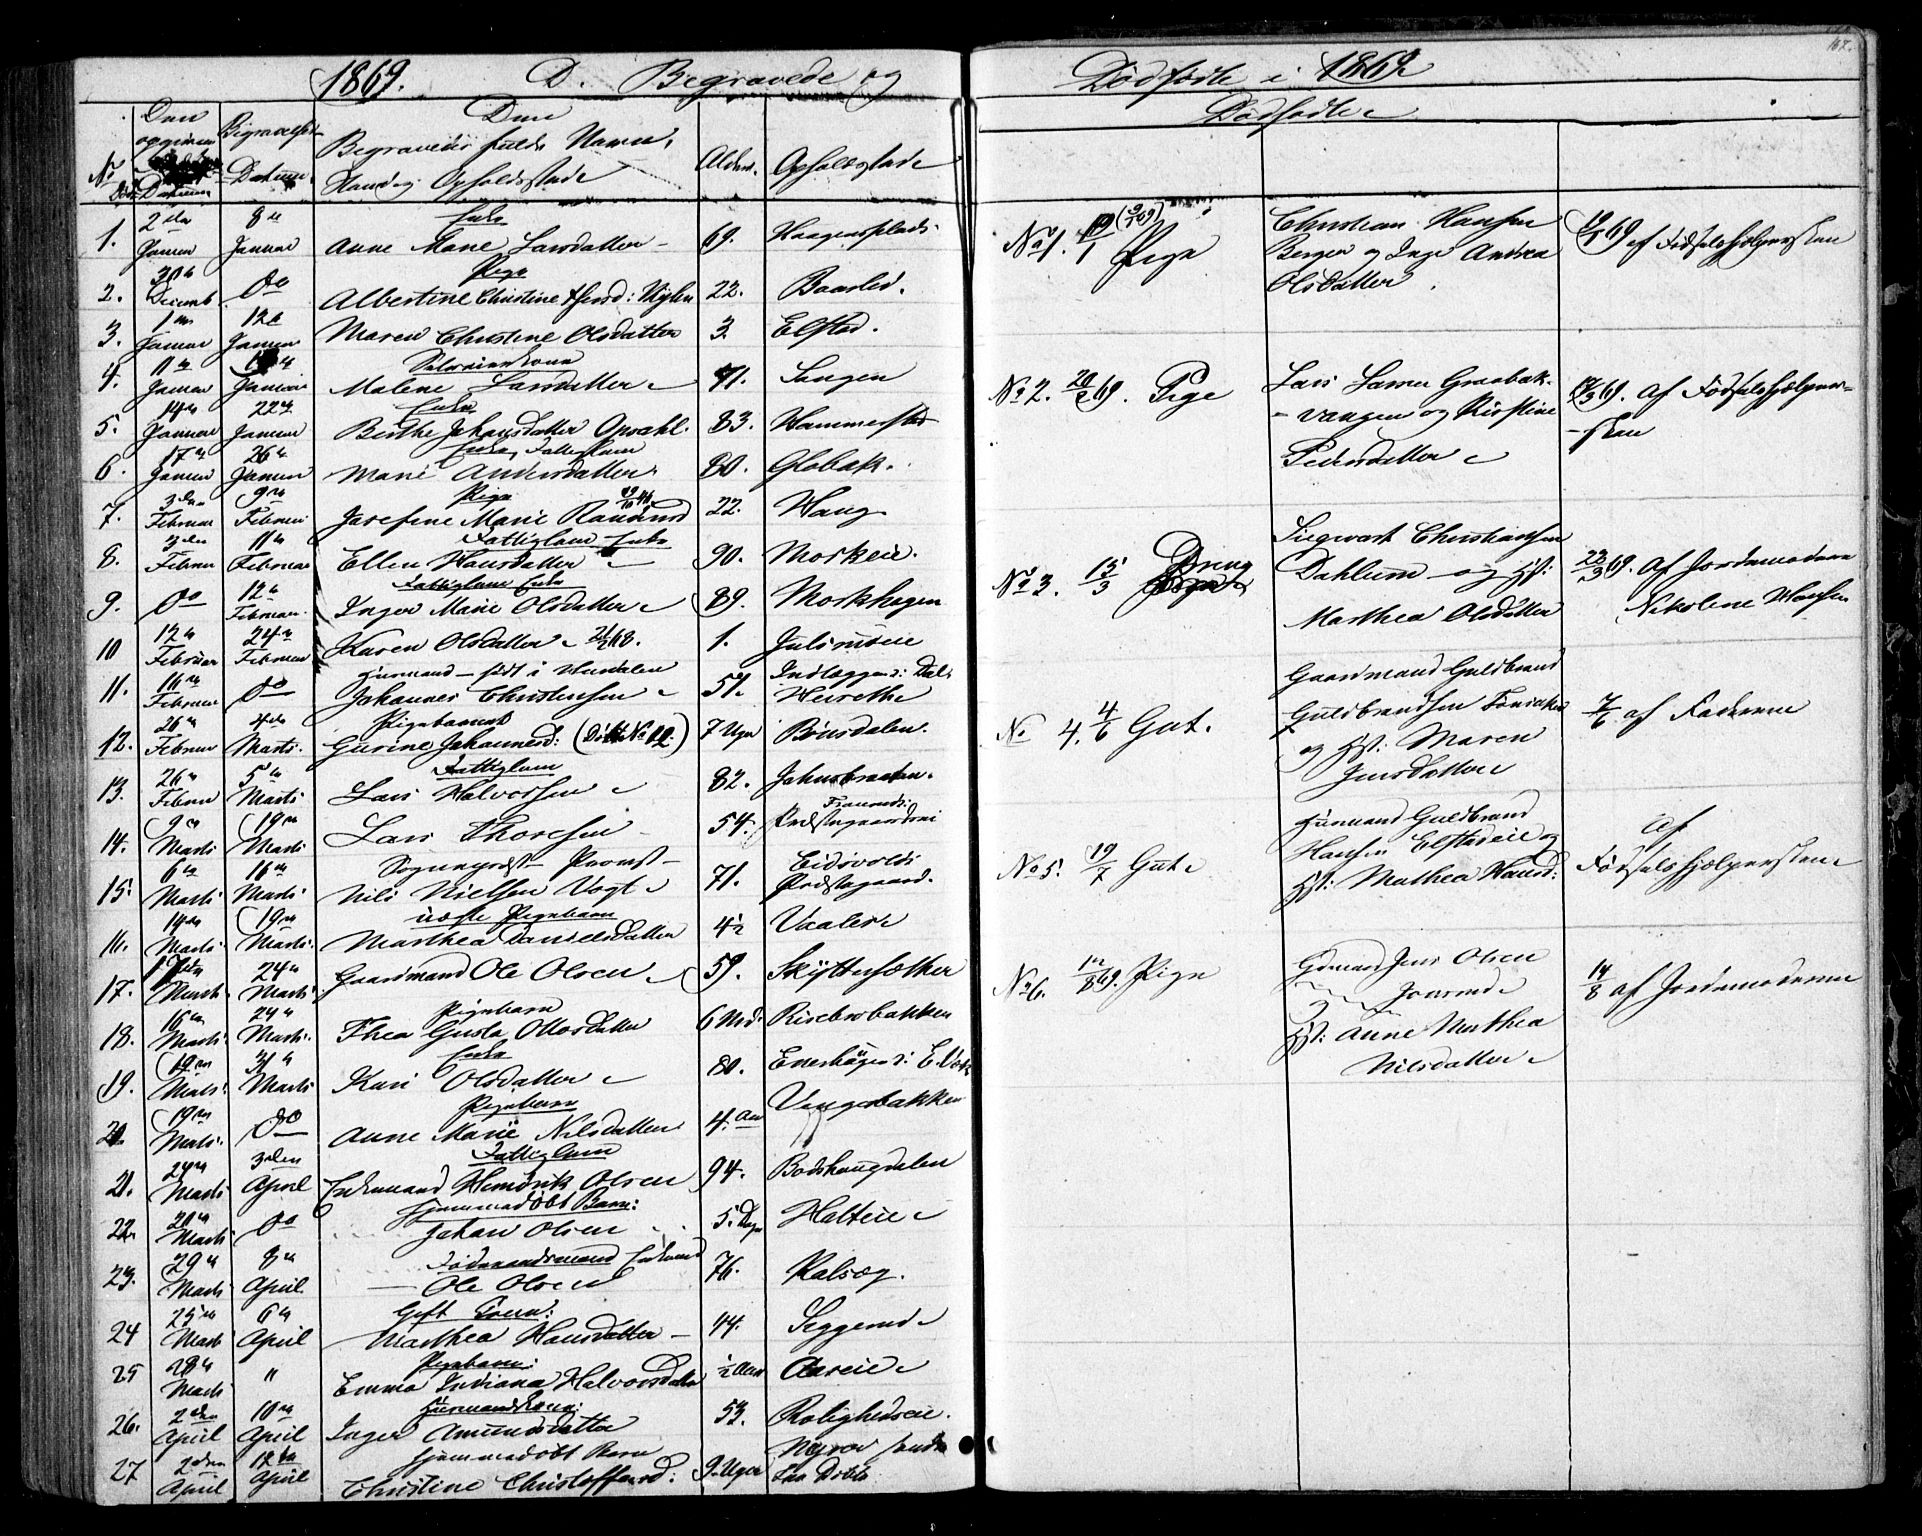 1869. D. Begravede og
No
Den opgivne Døds Datum
Begravelses Datum
Den Begravedes fulde Navn, Stand og Opholdsstad
Alder.
Opholdsstad
1. 2den Januar 8de Januar Enke Anne Marie Larsdatter 69. Haagensplads
2. 30te Decemb. Do Pige Albertine Christine 22. Baarlid.
3. 1ste Januar 12te Januar Maren Christine Olsdatter 3. Elstad.
4. 11te Januar Januar Malene Larsdatter 71. Sangen
5. 14de Januar 22de Januar Enke Birthe Johansdatter Opsahl. 83. Hammerstad
6. 17de Januar 26de Januar Enke, Fattiglem Marie Andersdatter 80. Globak.
7. 3den Februar 9de Februar Pige Josefine Marie Raundsrud 22. Haug
8. 3den Februar 11te Februar Fattiglem Enke Ellen Hansdatter 90. Morkeie.
9. Do 12te Februar Fattiglem Enke Inger Marie Olsdatter 89. Morkhagen
10 12te Februar 24de Februar Karen Olsdatter 1. Julsrudeie
11. 16de Februar Do Huusmand født i Hurdalen Johannes Christensen 57. Indlægger i Dal
12. 26de Februar 4de Marts. Pigebarnet Gurine Johannesd: (Døbt No 12.) 7 Uger Bönsdalen.
13. 26de Februar 5te Marts Fattiglem Lars Halvorsen 82. Jahnsbraaten.
14. 9de Marts 19de Marts Lars Thoresen 54. Præstegaardseie
15. 6te Marts 16de Marts Sogneprest Provst Nils Nielsen Vogt 71. Eidsvolds Præstegaard.
16. 14de Marts 19de Marts. uægte Pigebarn Marthea Danielsdatter 4½ Vaaler
17. 17de Marts 24de Marts Gaardmand Ole Olsen 59. Skyttesæther
18. 16de Marts 24de Marts. Pigebarn Thea Gusta Ottosdatter 6 Md. Risebrobakken
19. 19de Marts 31te Marts Enke Kari Olsdatter 80.
20. 19de Marts. Do Pigebarn Anne Marie Nilsdatter 4. Aar Vengerbakken
21. 24de Marts 3den April Fattiglem Enkemand Hendrik Olsen 94. Bodshaugdalen
22. 20de Marts Do Hjemmedøbt Barn: Johan Olsen 5. Dage Holteie
23. 29de Marts 8de April. Føderaadsmand Enkemand Ole Olsen 76. Kalsæg.
24 25de Marts 6te April Gift Marthea Hansdatter 44. Seggerud
25 28de Marts " Pigebarn: Emma Indiana Halvorsdatter ½ Aar Aaseie
26. 2den April 10de April Huusmandskone: Inger Amundsdatter 53. Rolighedseie.
27 2den April 17de April Hjemmedøbt Barn Christine Christoffersd: 9. Uger Nyrød
Dødfødte i 1869
Dødfødte
No 1. 19/1 Pige Christian Hansen Berger og Inge Andrea Olsdatter. 69 af Fødselshjælpersken
No 2. 20/2 69. Pige Lars Larsen Graabak-vangen og Kirstine Pedersdatter 69. af Fødselshjælper-sken
No 3. 15/3 Dreng Siegwart Christiansen Dahlum og Hst: Marthea Olsdatter 22/3 69. af Jordemoderen Nikoline Hansen
No 4. 4/6 Gut. Gaardmand Guldbrand Guldbrandsen og Hst: Maren Jensdatter 7/6 af Faderen
No 5. 19/7 Gut Huusmand Guldbrand Hansen Elstadeie og Hst: Mathea Hansd: Af Fødselshjælpersken
No 6. 12/8 69. Pige Gdmand Jens Olsen Jønsrud Hst: Anne Marthea Nilsdatter 14/8 af Jordemoderen